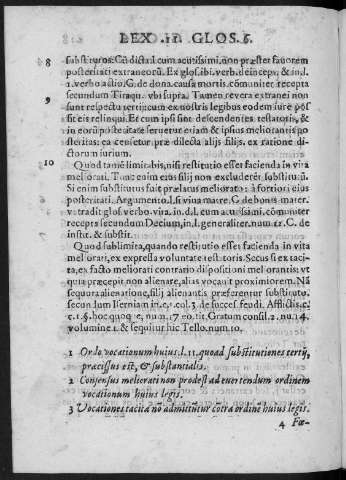 LEX .11. GLOS. 6.
8 substitutos. Cũ dicta l. cum acutissimi. non præstet fauorem
posteritati extraneorũ. Ex glos. ibi. verb. deinceps, & in. l.
1. verbo a filio, G. de dona. causa mortis. cõmuniter recepta
9 secundum Tiraqu. vbi supra. Tamen reuera extranei non
sunt respectu tertij: cum ex nostris legibus eodem iure pos
sit eis relinqui. Et cum ipsi sunt descendentes testatoris, &
in eorũ posteritate seruetur etiam & ipsius meliorantis po
steritas: ea censetur præ dilecta alijs filijs, ex ratione di-
ctorum iurium.
10 Quod tamẽ limitabis, nisi restitutio esset facienda in vita
meliorati. Tunc enim eius filij non excluderẽt substitutũ.
Si enim substitutus fuit prælatus meliorato: à fortiori eius
posteritati. Argumento. l. si viua matre. C. de bonis mater.
v: tradit glos verbo. vita. in. d. l. cum acutissimi. cõmuniter
recepta secundum Decium, in. l. generaliter. num. 11. C. de
instit. & substit.
Quod sublimita, quando restitutio esset facienda in vita
meliorati, ex expressa voluntate testatoris. Secus si ex taci-
ta, ex facto meliorati contrario dispositioni meliorantis: vt
quia præcepit non alienare, alias vocauit proximiorem. Nã
sequuta alienatione, filij alienantis præferentur substituto.
secundum Iserniam in. c. 1. col. 3. de succes. feudi. Afflictis. c.
1. §. hoc quoque, num. 17. eo. tit. Gratum consil. 2. nu. 14.
volumine 1. & sequitur hic Tello. num. 10.
1 Ordo vocationum huius. l. 11. quoad substitutiones tertij,
præcissus est, & substantialis.
2 Consensus meliorati non prodest ad euertendum ordinem
vocationum huius legis.
3 Vocationes tacita nõ admittũtur cõtra ordinẽ huius legis.
4 Fœ-